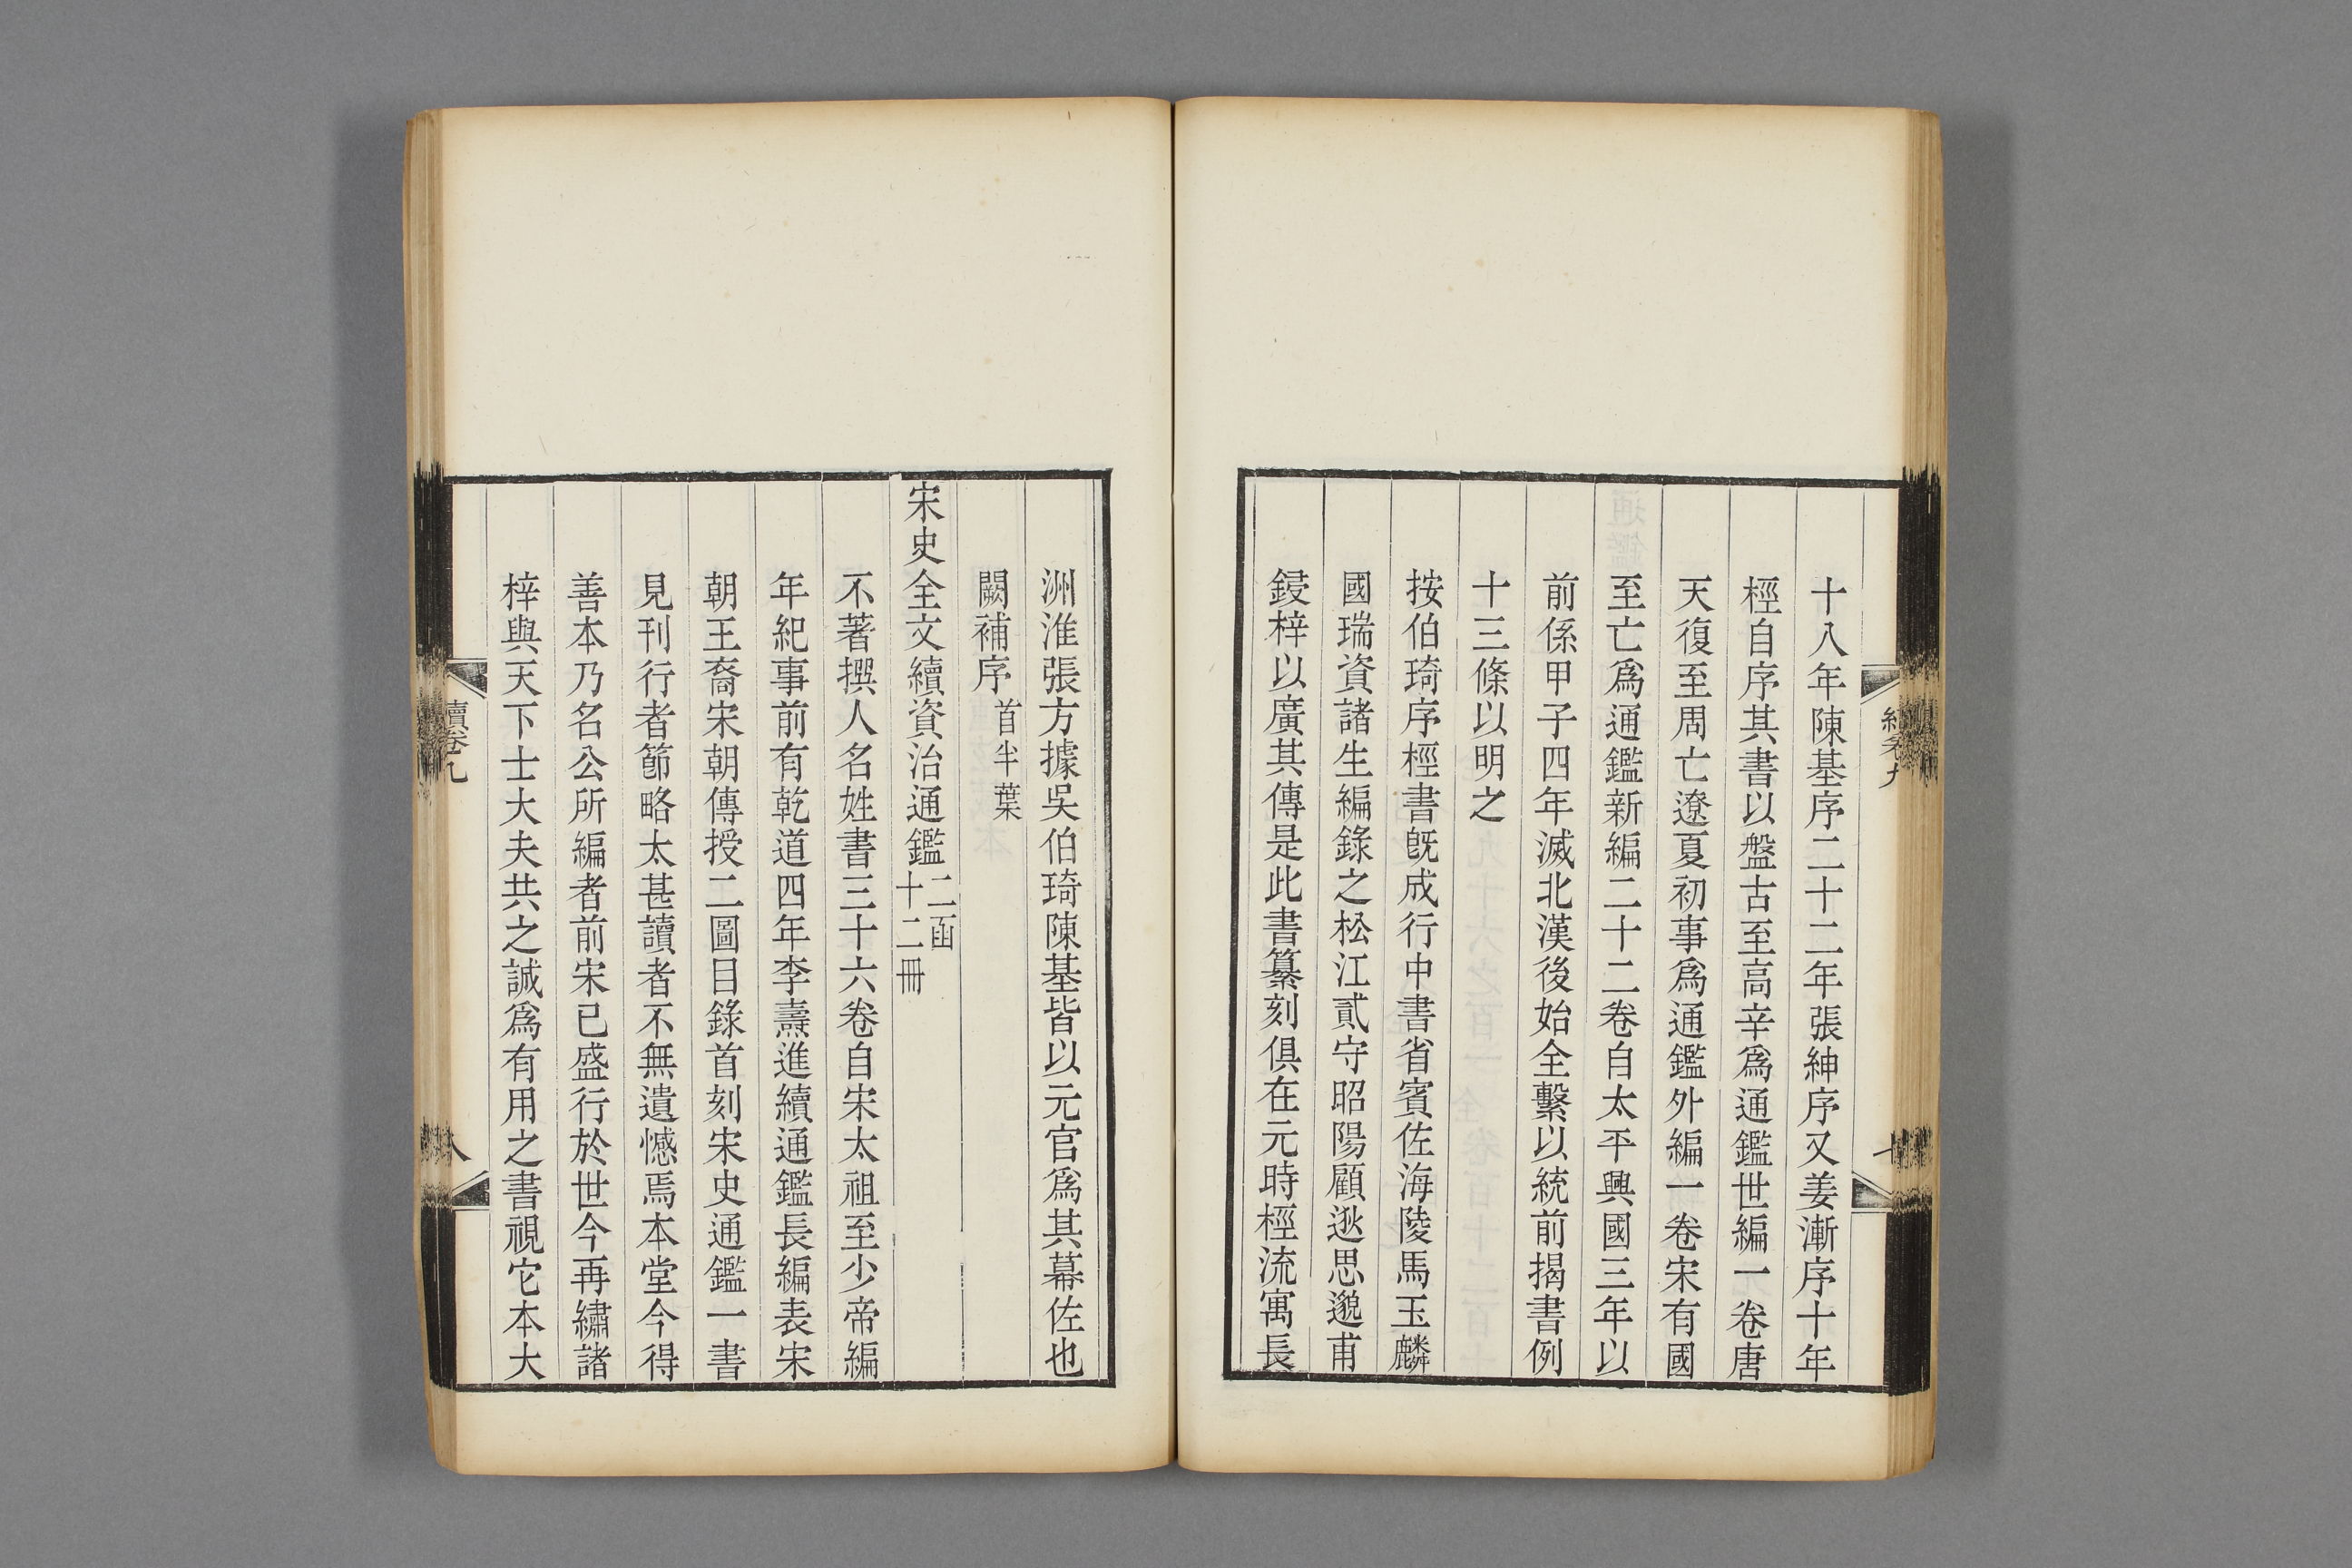 十八年陳基序二十二年張紳序又姜漸序十年
桱自序其書以盤古至高辛爲通鑑世編一卷唐
天復至周亡遼夏初事爲通鑑外編一卷宋有國
至亡爲通鑑新編二十二卷自太平興國三年以
前係甲子四年滅北漢後始全繫以統前揭書例
十三條以明之
按伯琦序桱書旣成行中書省賓佐海陵馬玉麟
國瑞資諸生編錄之松江貳守昭陽顧逖思邈甫
鋟梓以廣其傳是此書纂刻俱在元時桱流寓長
洲淮張方據吳伯琦陳基皆以元官爲其幕佐也
闕補序首半葉
宋史全文續資治通鑑二函十二冊
不著撰人名姓書三十六卷自宋太祖至少帝編
年紀事前有乾道四年李燾進續通鑑長編表宋
朝王裔宋朝傳授二圖目錄首刻宋史通鑑一書
見刊行者節略太甚讀者不無遺憾焉本堂今得
善本乃名公所編者前宋已盛行於世今再繡諸
梓與天下士大夫共之誠爲有用之書視它本大
續卷九
八